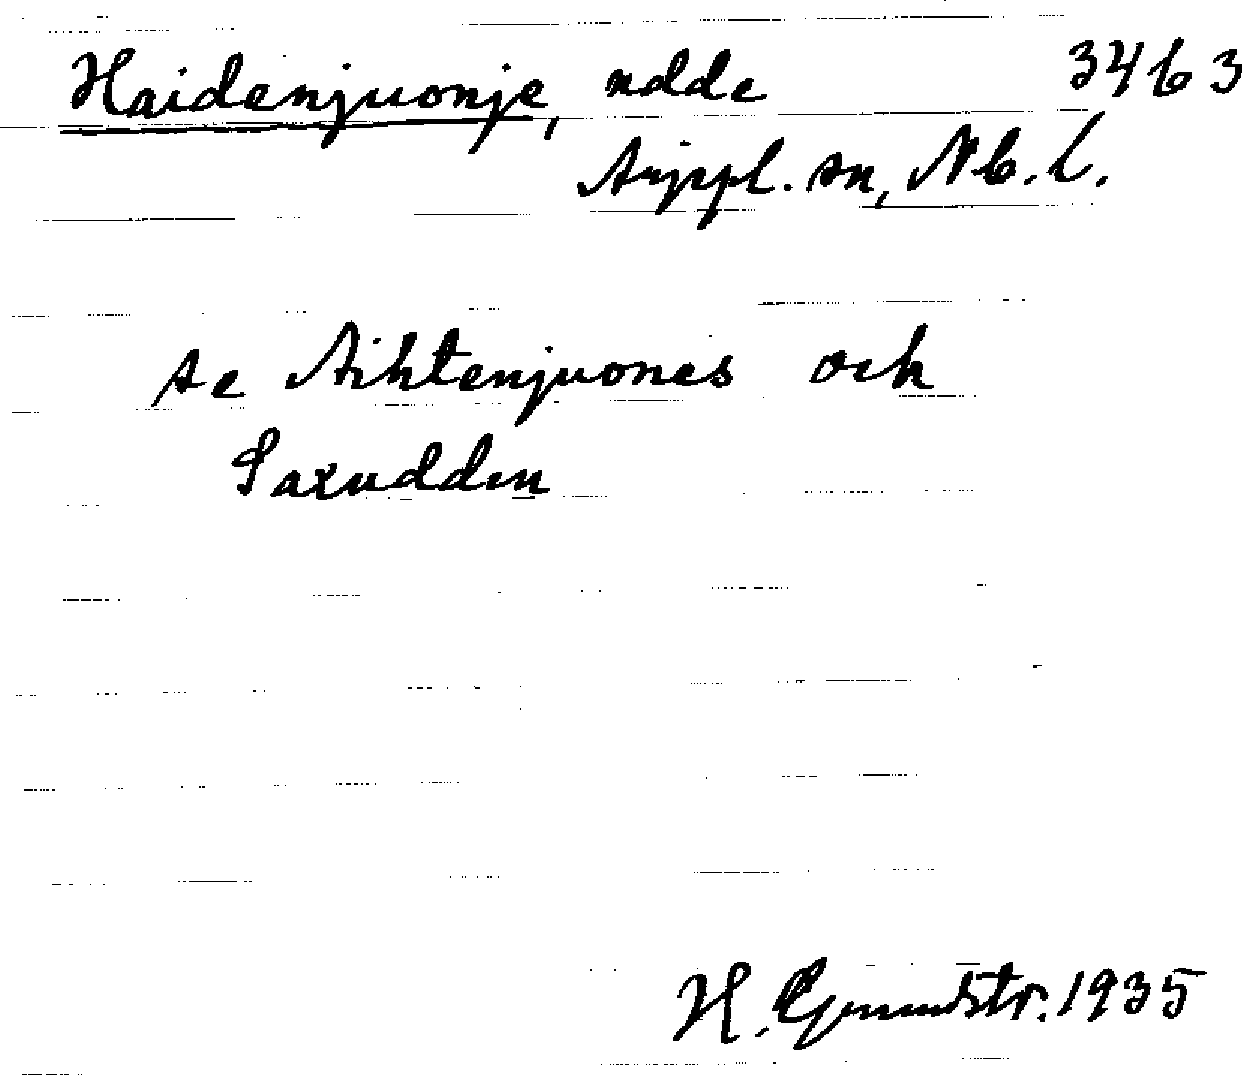 Haidenjuonje, udde 3463
Arjepl. sn, Nb. L.
se Aihtenjuones och
Saxudden
H. Grundstr. 1935